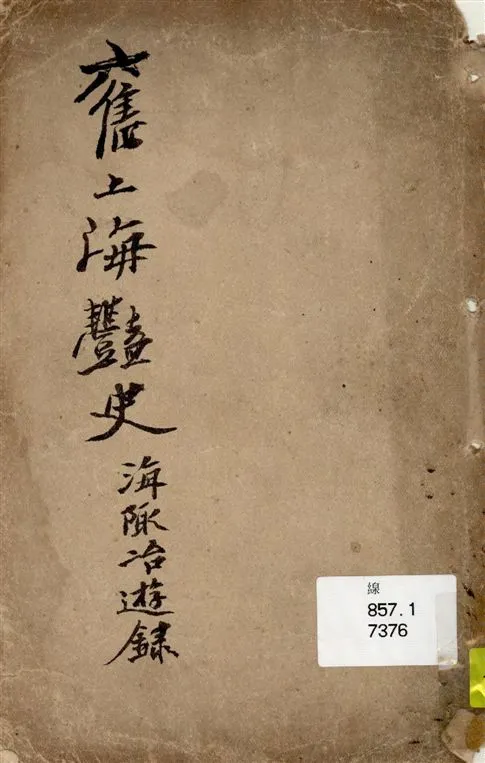 舊上海豔史
海陬冶遊錄
線
857.1
7376